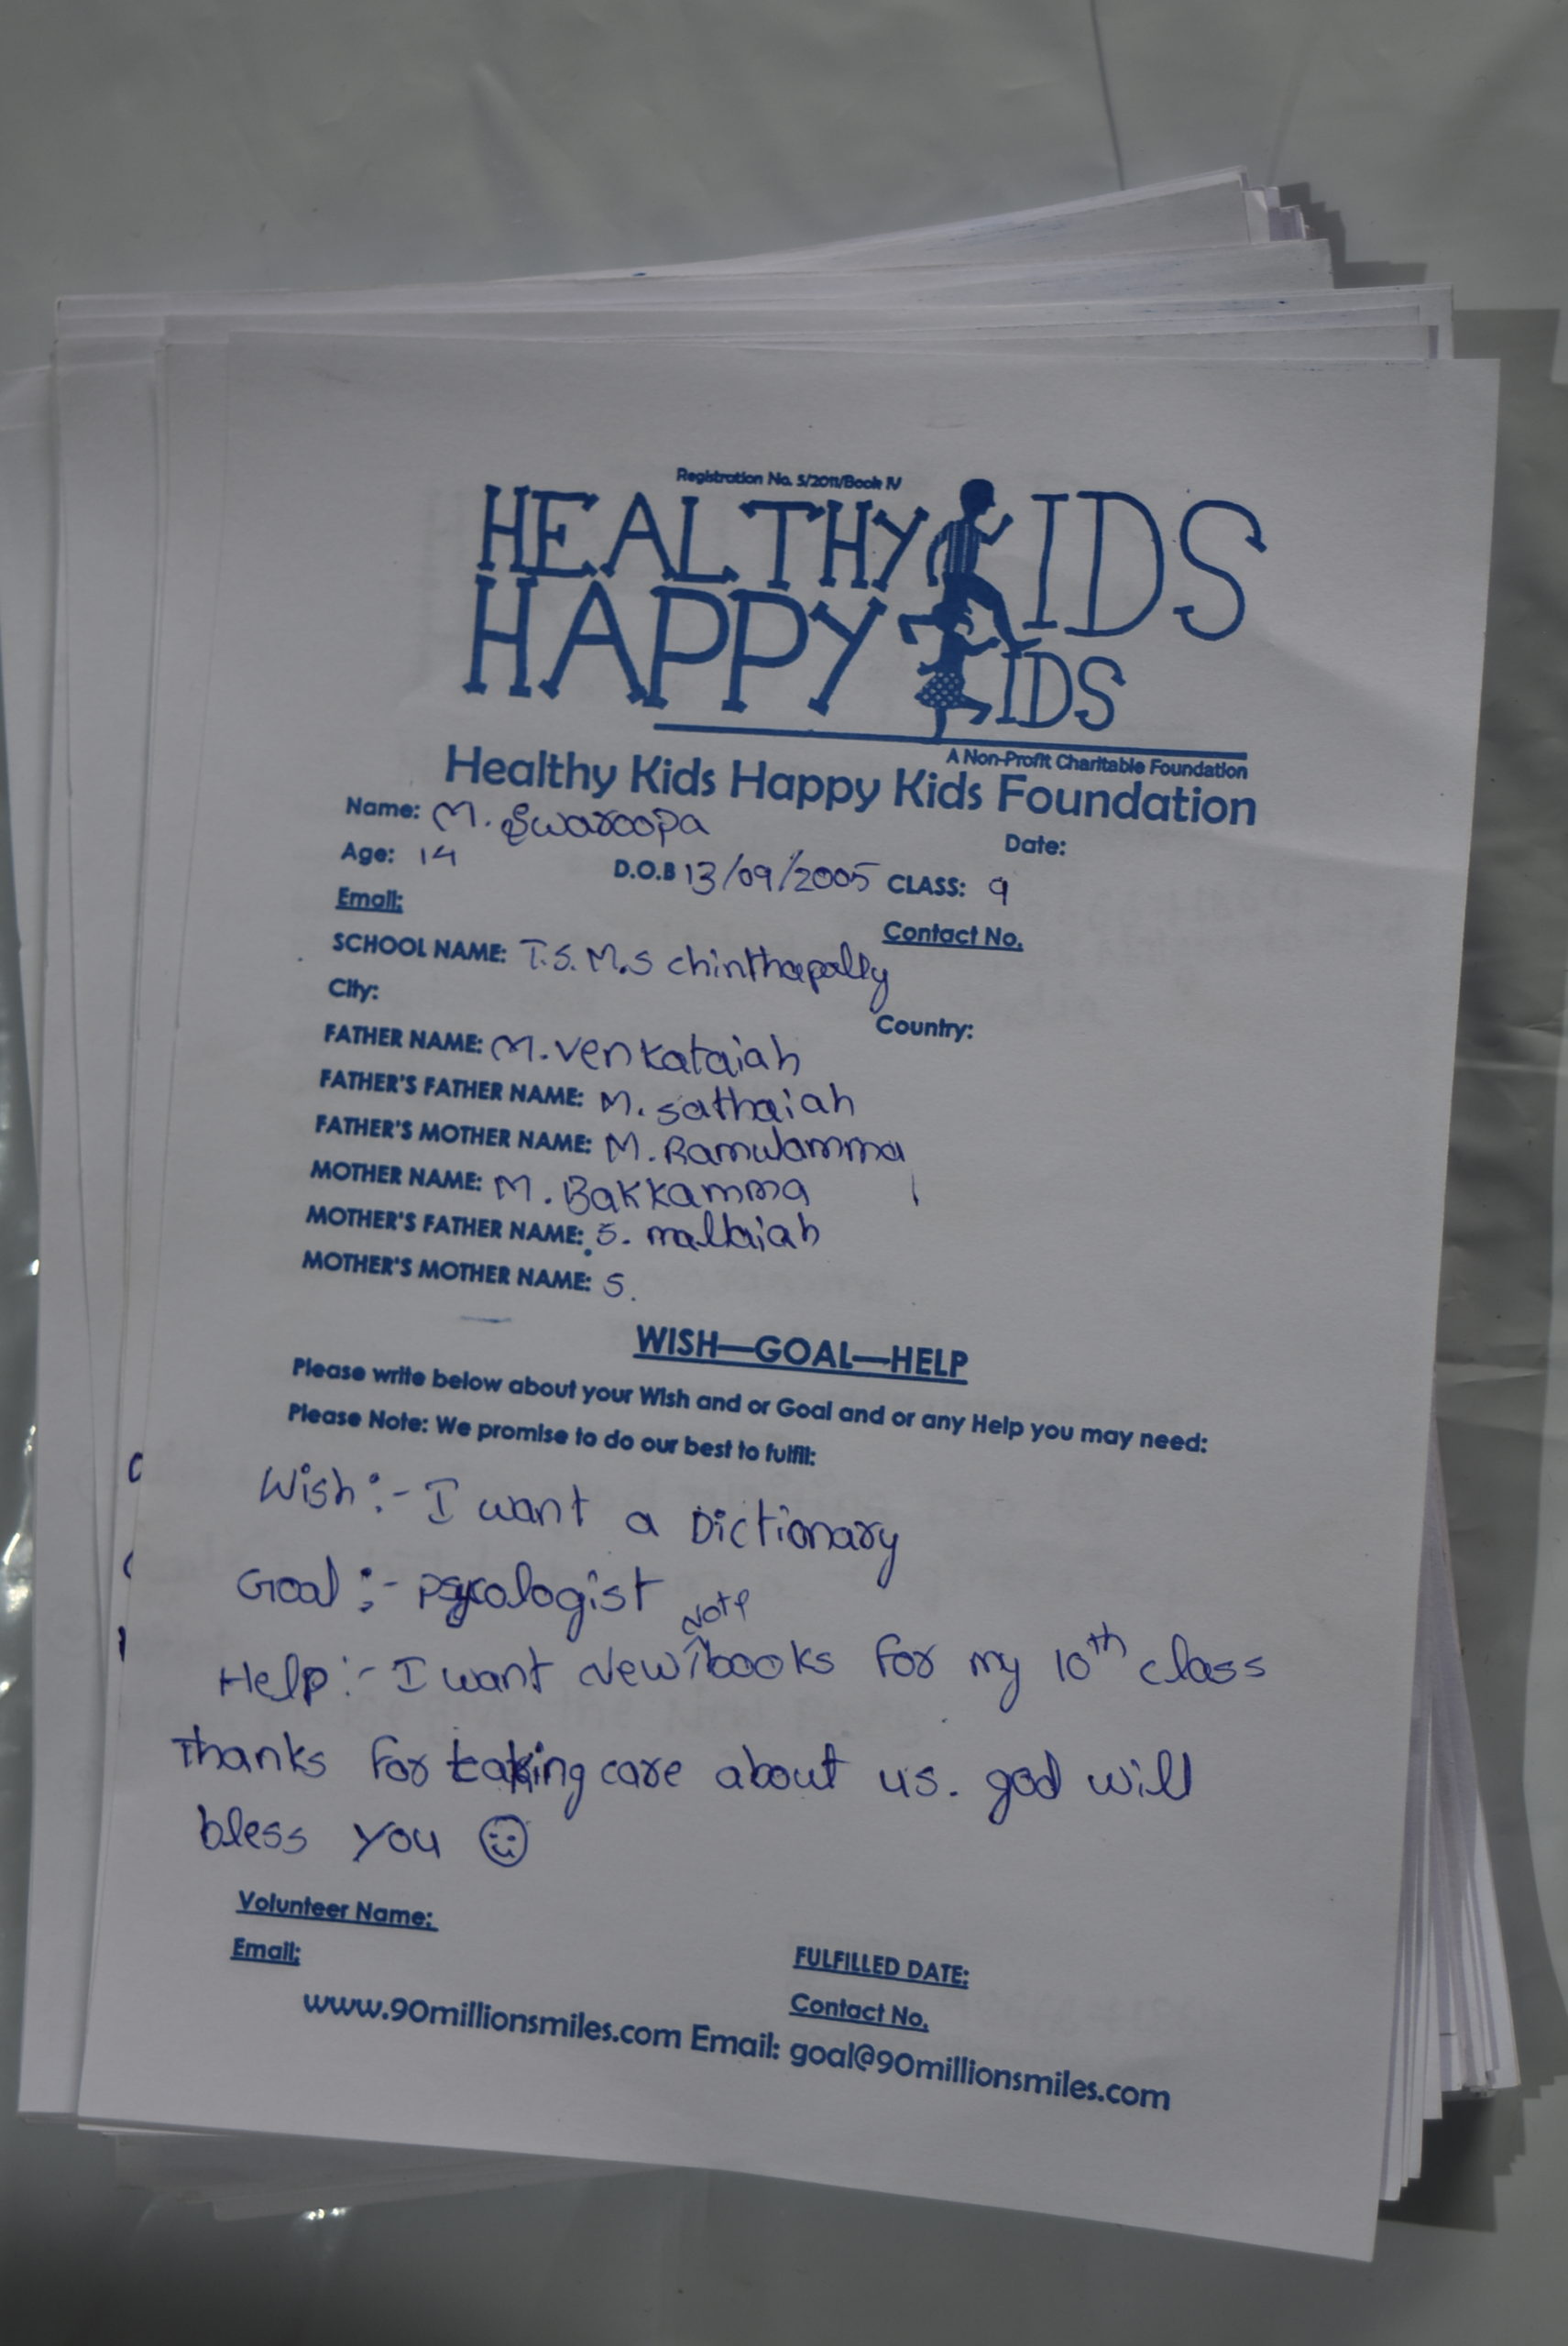 Registration No. 5/2011/Book IV
HEALTHY KIDS
HAPPY KIDS
A Non-Profit Charitable Foundation
Healthy Kids Happy Kids Foundation
Name: M. Swaroopa
Date:
Age: 14 D.O.B 13/09/2005 CLASS: 9
Email:
Contact No.
SCHOOL NAME: T.S.M.S chinthapally
City:
Country:
FATHER NAME: M. venkataiah
FATHER'S FATHER NAME: M. sathaiah
FATHER'S MOTHER NAME: M. Ramulamma
MOTHER NAME: M. Bakkamma
MOTHER'S FATHER NAME: S. mallaiah
MOTHER'S MOTHER NAME: S.
WISH—GOAL—HELP
Please write below about your Wish and or Goal and or any Help you may need:
Please Note: We promise to do our best to fulfil:
Wish :- I want a Dictionary
Goal :- psycologist
Help :- I want New Note books for my 10th class
Thanks for taking care about us. god will
bless you
Volunteer Name:
Email:
FULFILLED DATE:
Contact No.
www.90millionsmiles.com Email: goal@90millionsmiles.com